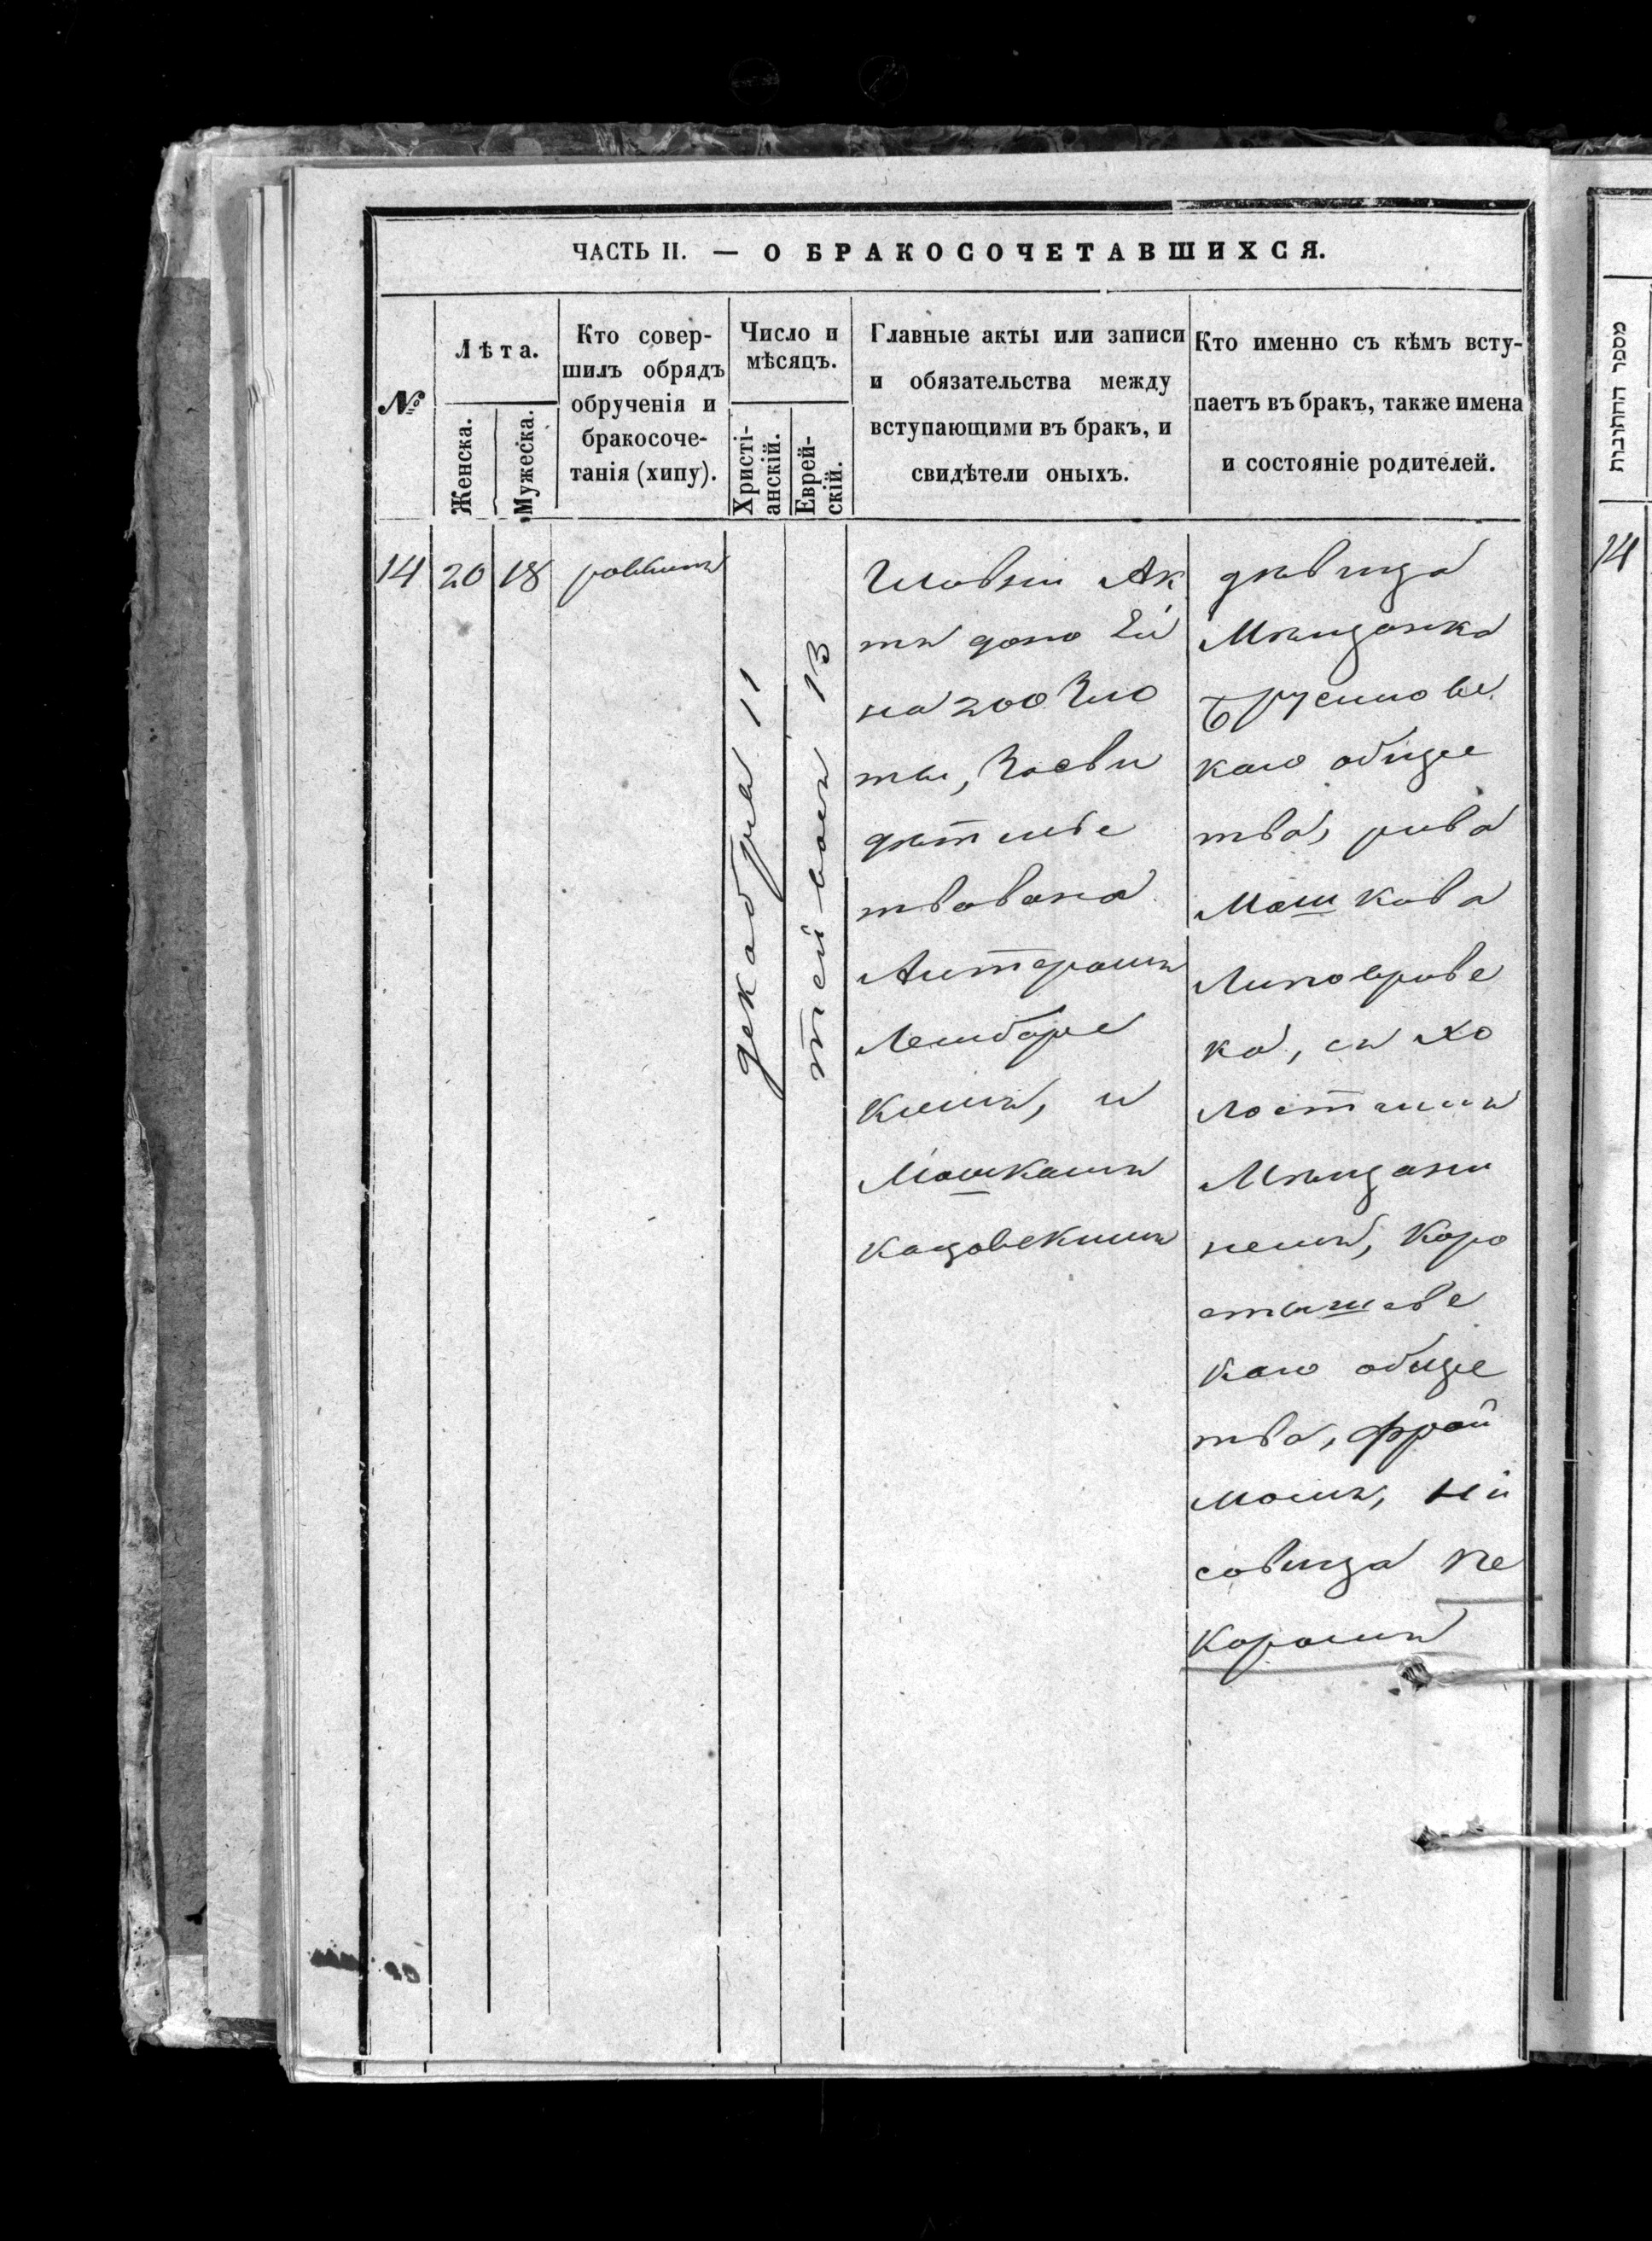 ЧАСТЬ II. — О БРАКОСОЧЕТАВШИХСЯ.
№
Лѣта.
Женска.
Мужеска.
Кто совер-
шилъ обрядъ
обрученія и
бракосоче-
танія (хипу).
Число и
мѣсяцъ.
Христі-
анскій.
Еврей-
скій.
Главные акты или записи
и обязательства между
вступающими въ бракъ, и
свидѣтели оныхъ.
Кто именно съ кѣмъ всту-
паетъ въ бракъ, также имена
и состояніе родителей.
14
20
18
раввинъ
декабря 11
13
Главни Ак
ты дано Ей
на 200 Зло
ты, Засви
дѣтельс
твована
Лейбарс
кимъ, и
Мошкомъ
Кацовскимъ
дѣвица
Мѣщанка
Брусиловс
каго общес
тва, рива
Мошкова
Липоврвс
ка, съ хо
лостымъ
Мѣщани
немъ, Каро
стышевс
каго общес
тва, Фрой
Каромъ
מספר החתונות
14